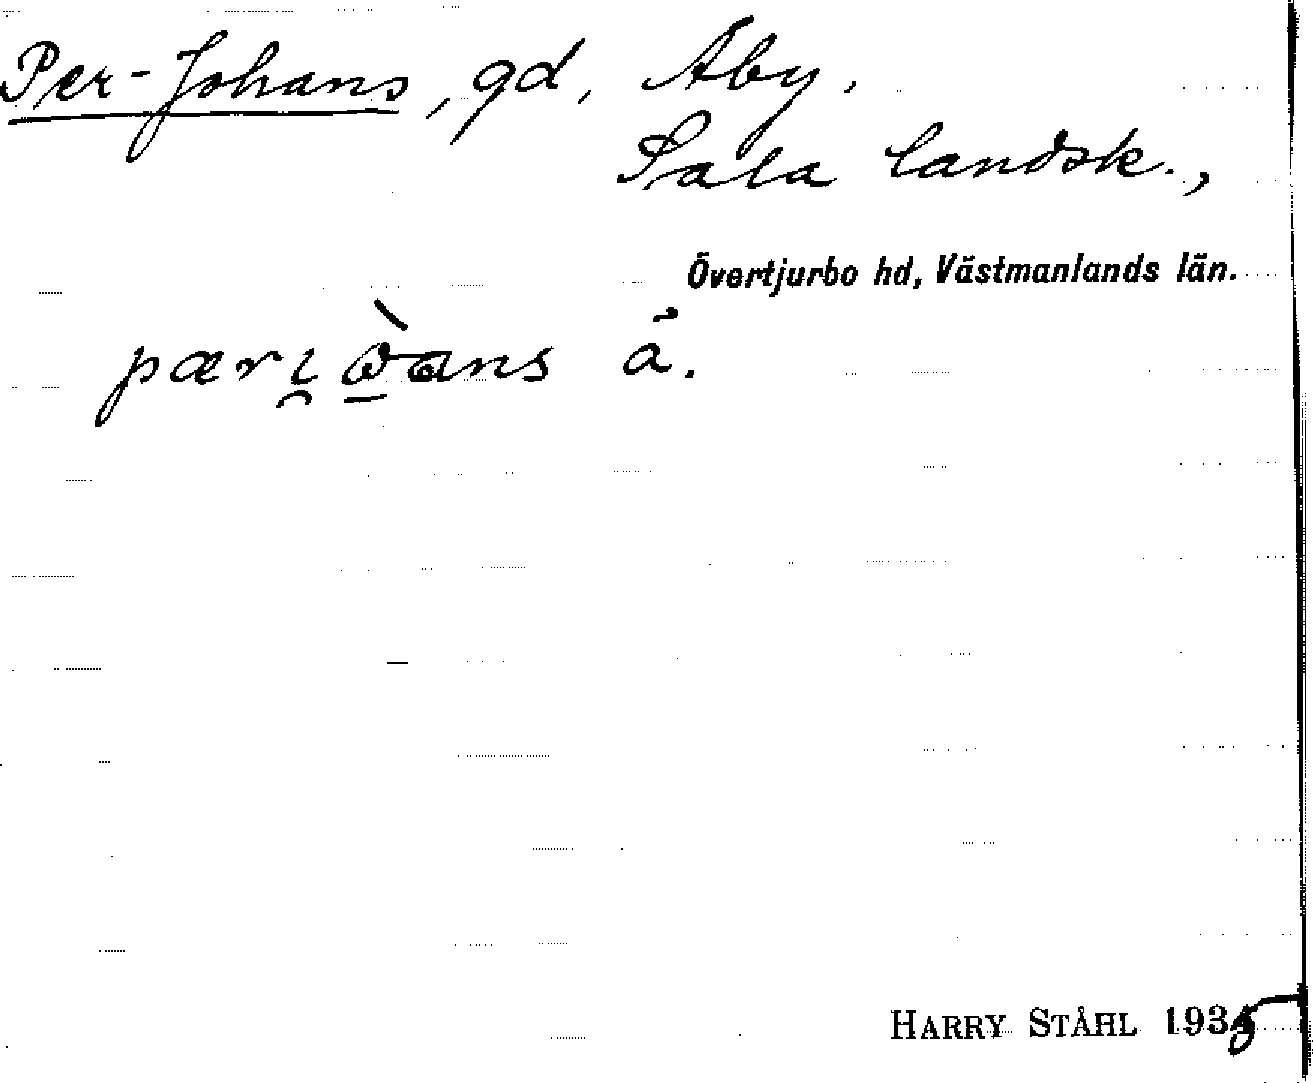 Per-Johans, gd, Åby.
Sala landsk.,
Övertjurbo hd, Västmanlands län.
å.
HARRY STÅHL 1935